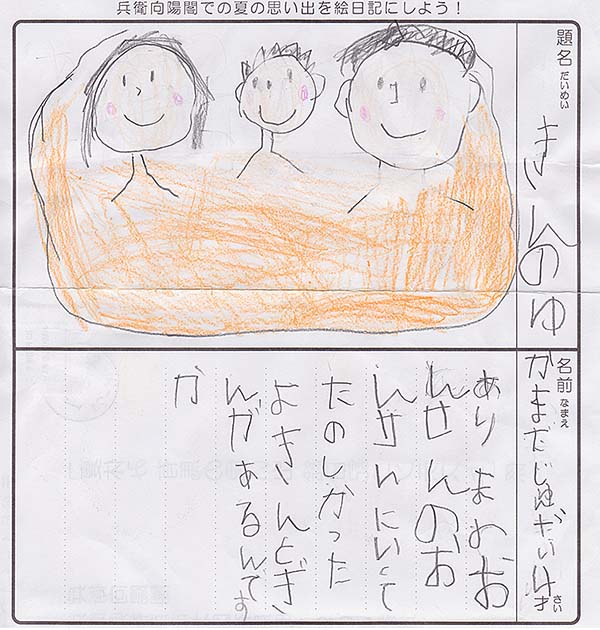 兵衛向陽閣での夏の思い出を絵日記にしよう!
題名 だいめい
きんのゆ
名前 なまえ
かまだじゅだい
才 さい
ありまおお
んせんのお
んせんにいて
たのしかった
よきんとぎ
んがあるんです
か